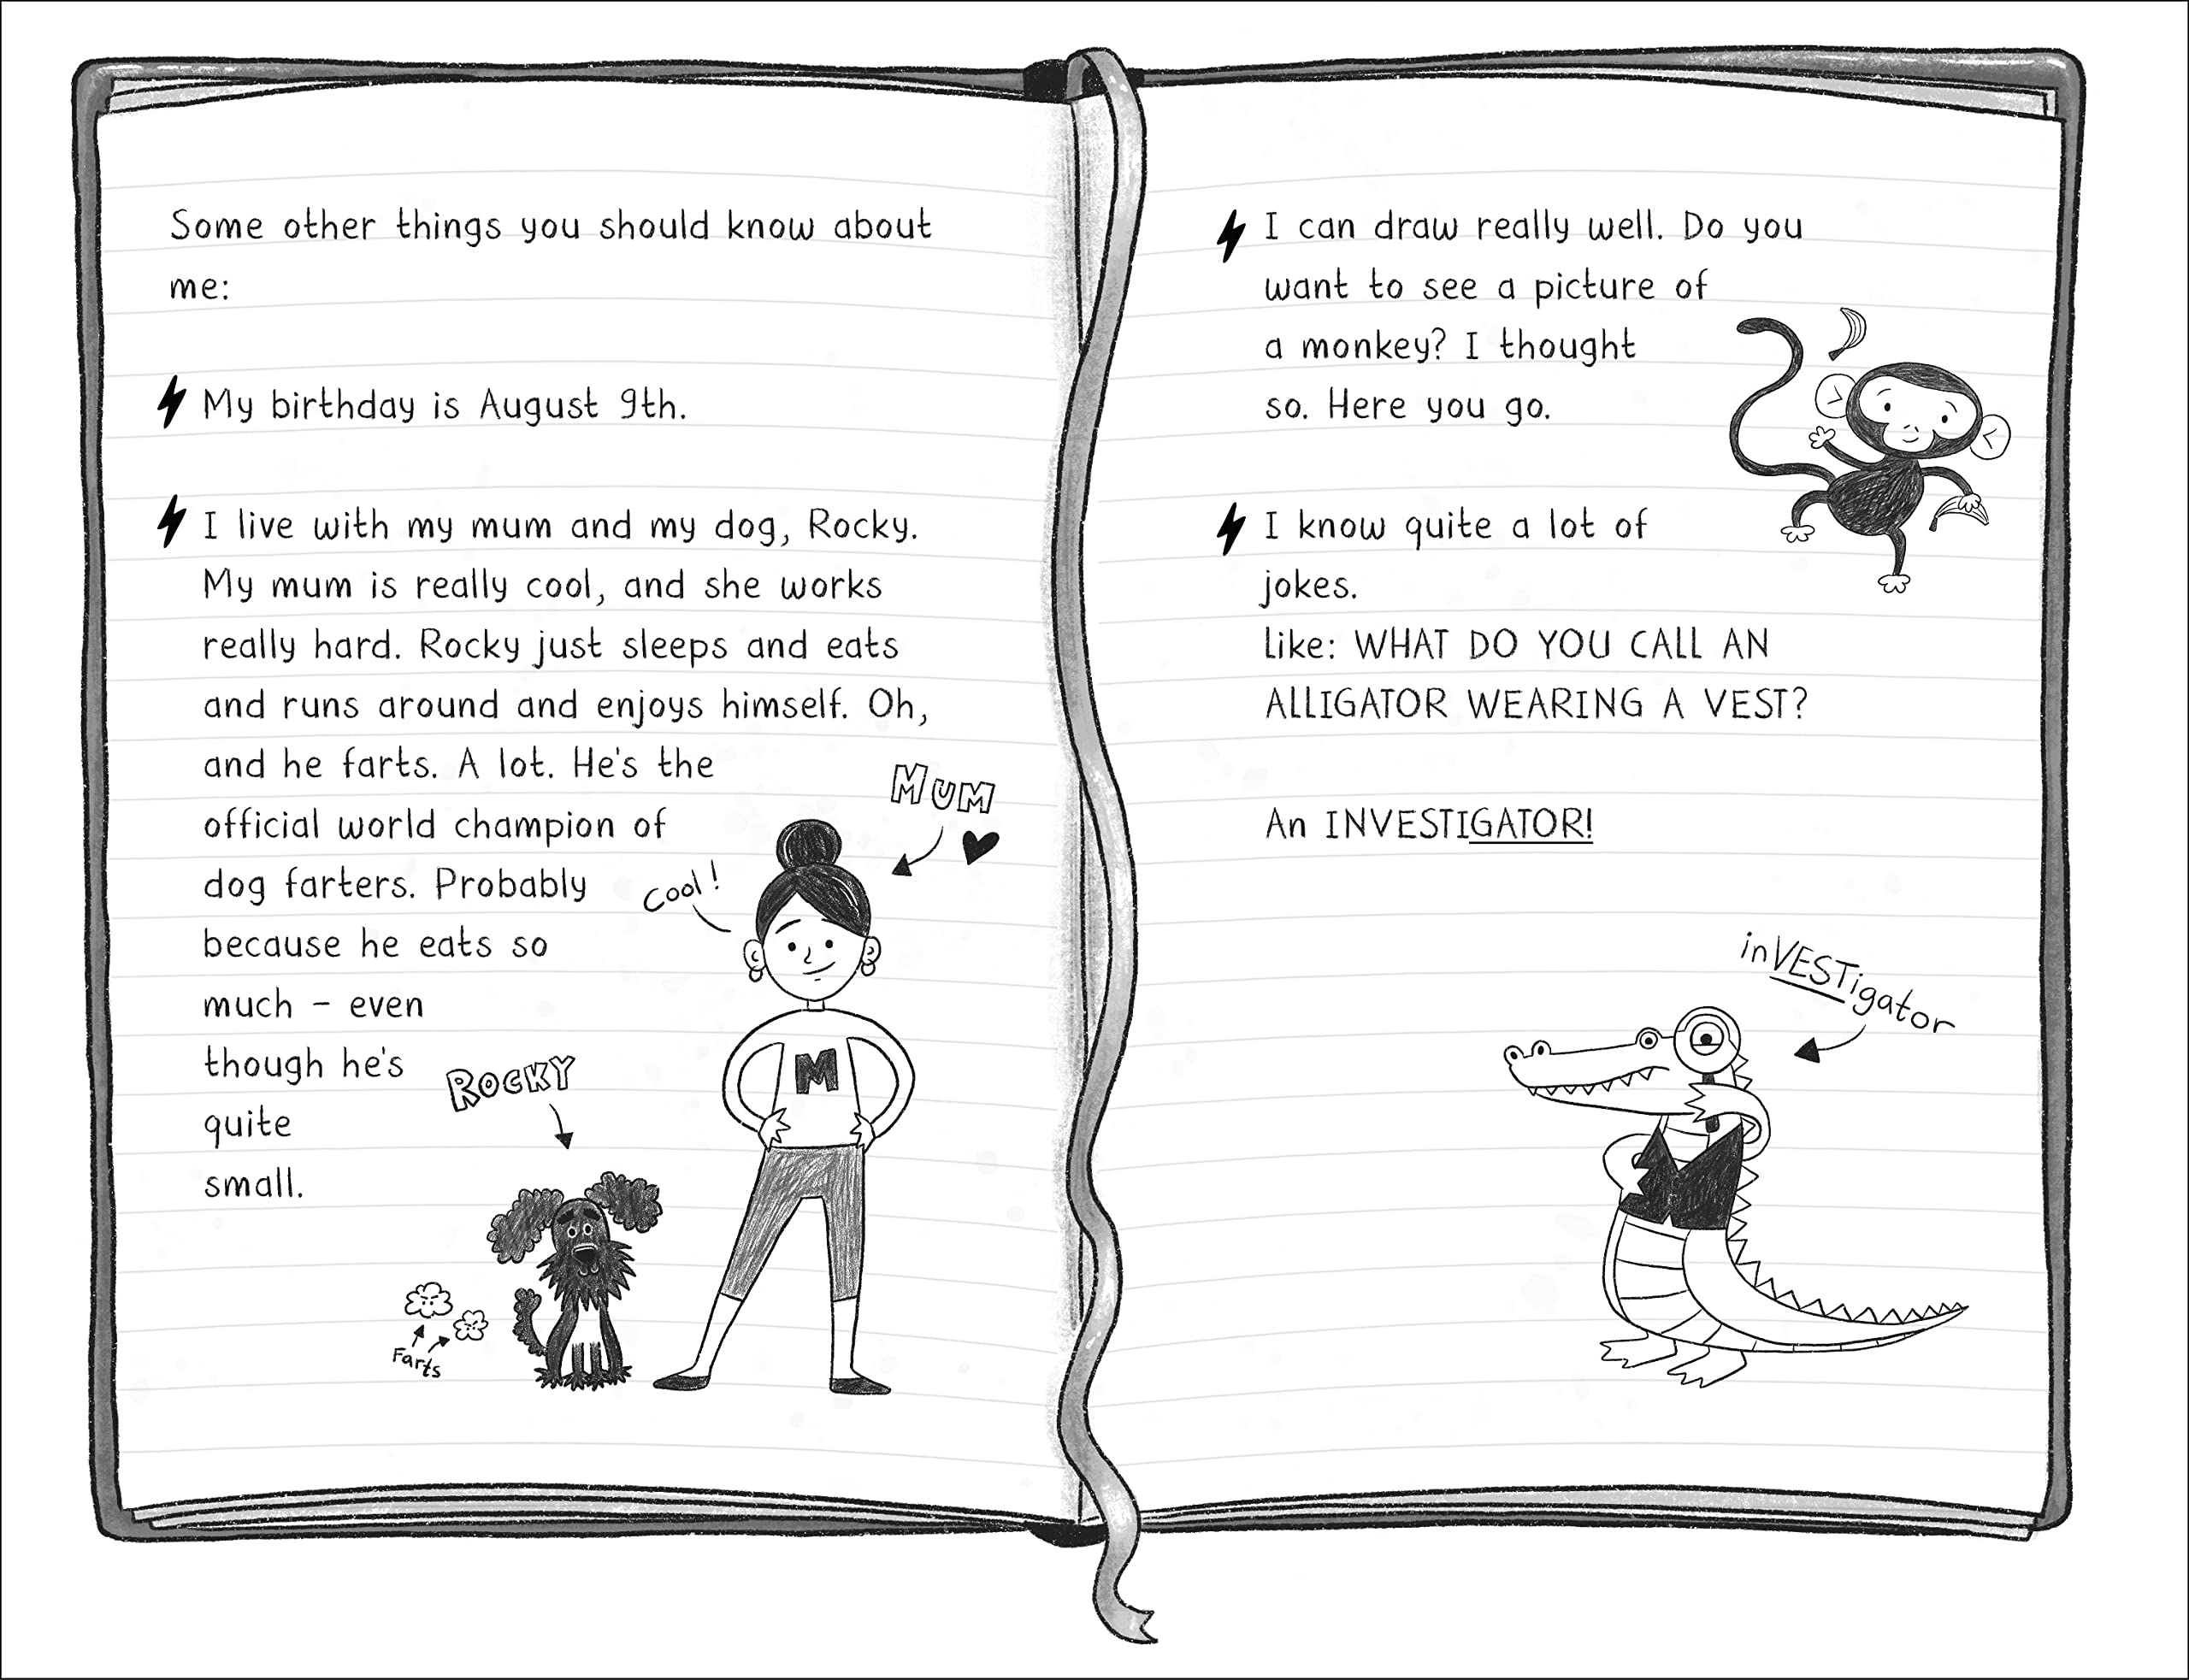 Some other things you should know about
me:
My birthday is August 9th.
I live with my mum and my dog, Rocky.
My mum is really cool, and she works
really hard. Rocky just sleeps and eats
and runs around and enjoys himself. Oh,
and he farts. A lot. He's the
official world champion of
dog farters. Probably
because he eats so
much – even
though he's
quite
small.
MUM
Cool!
M
ROCKY
Farts
I can draw really well. Do you
want to see a picture of
a monkey? I thought
so. Here you go.
I know quite a lot of
jokes.
like: WHAT DO YOU CALL AN
ALLIGATOR WEARING A VEST?
An INVESTIGATOR!
inVESTigator